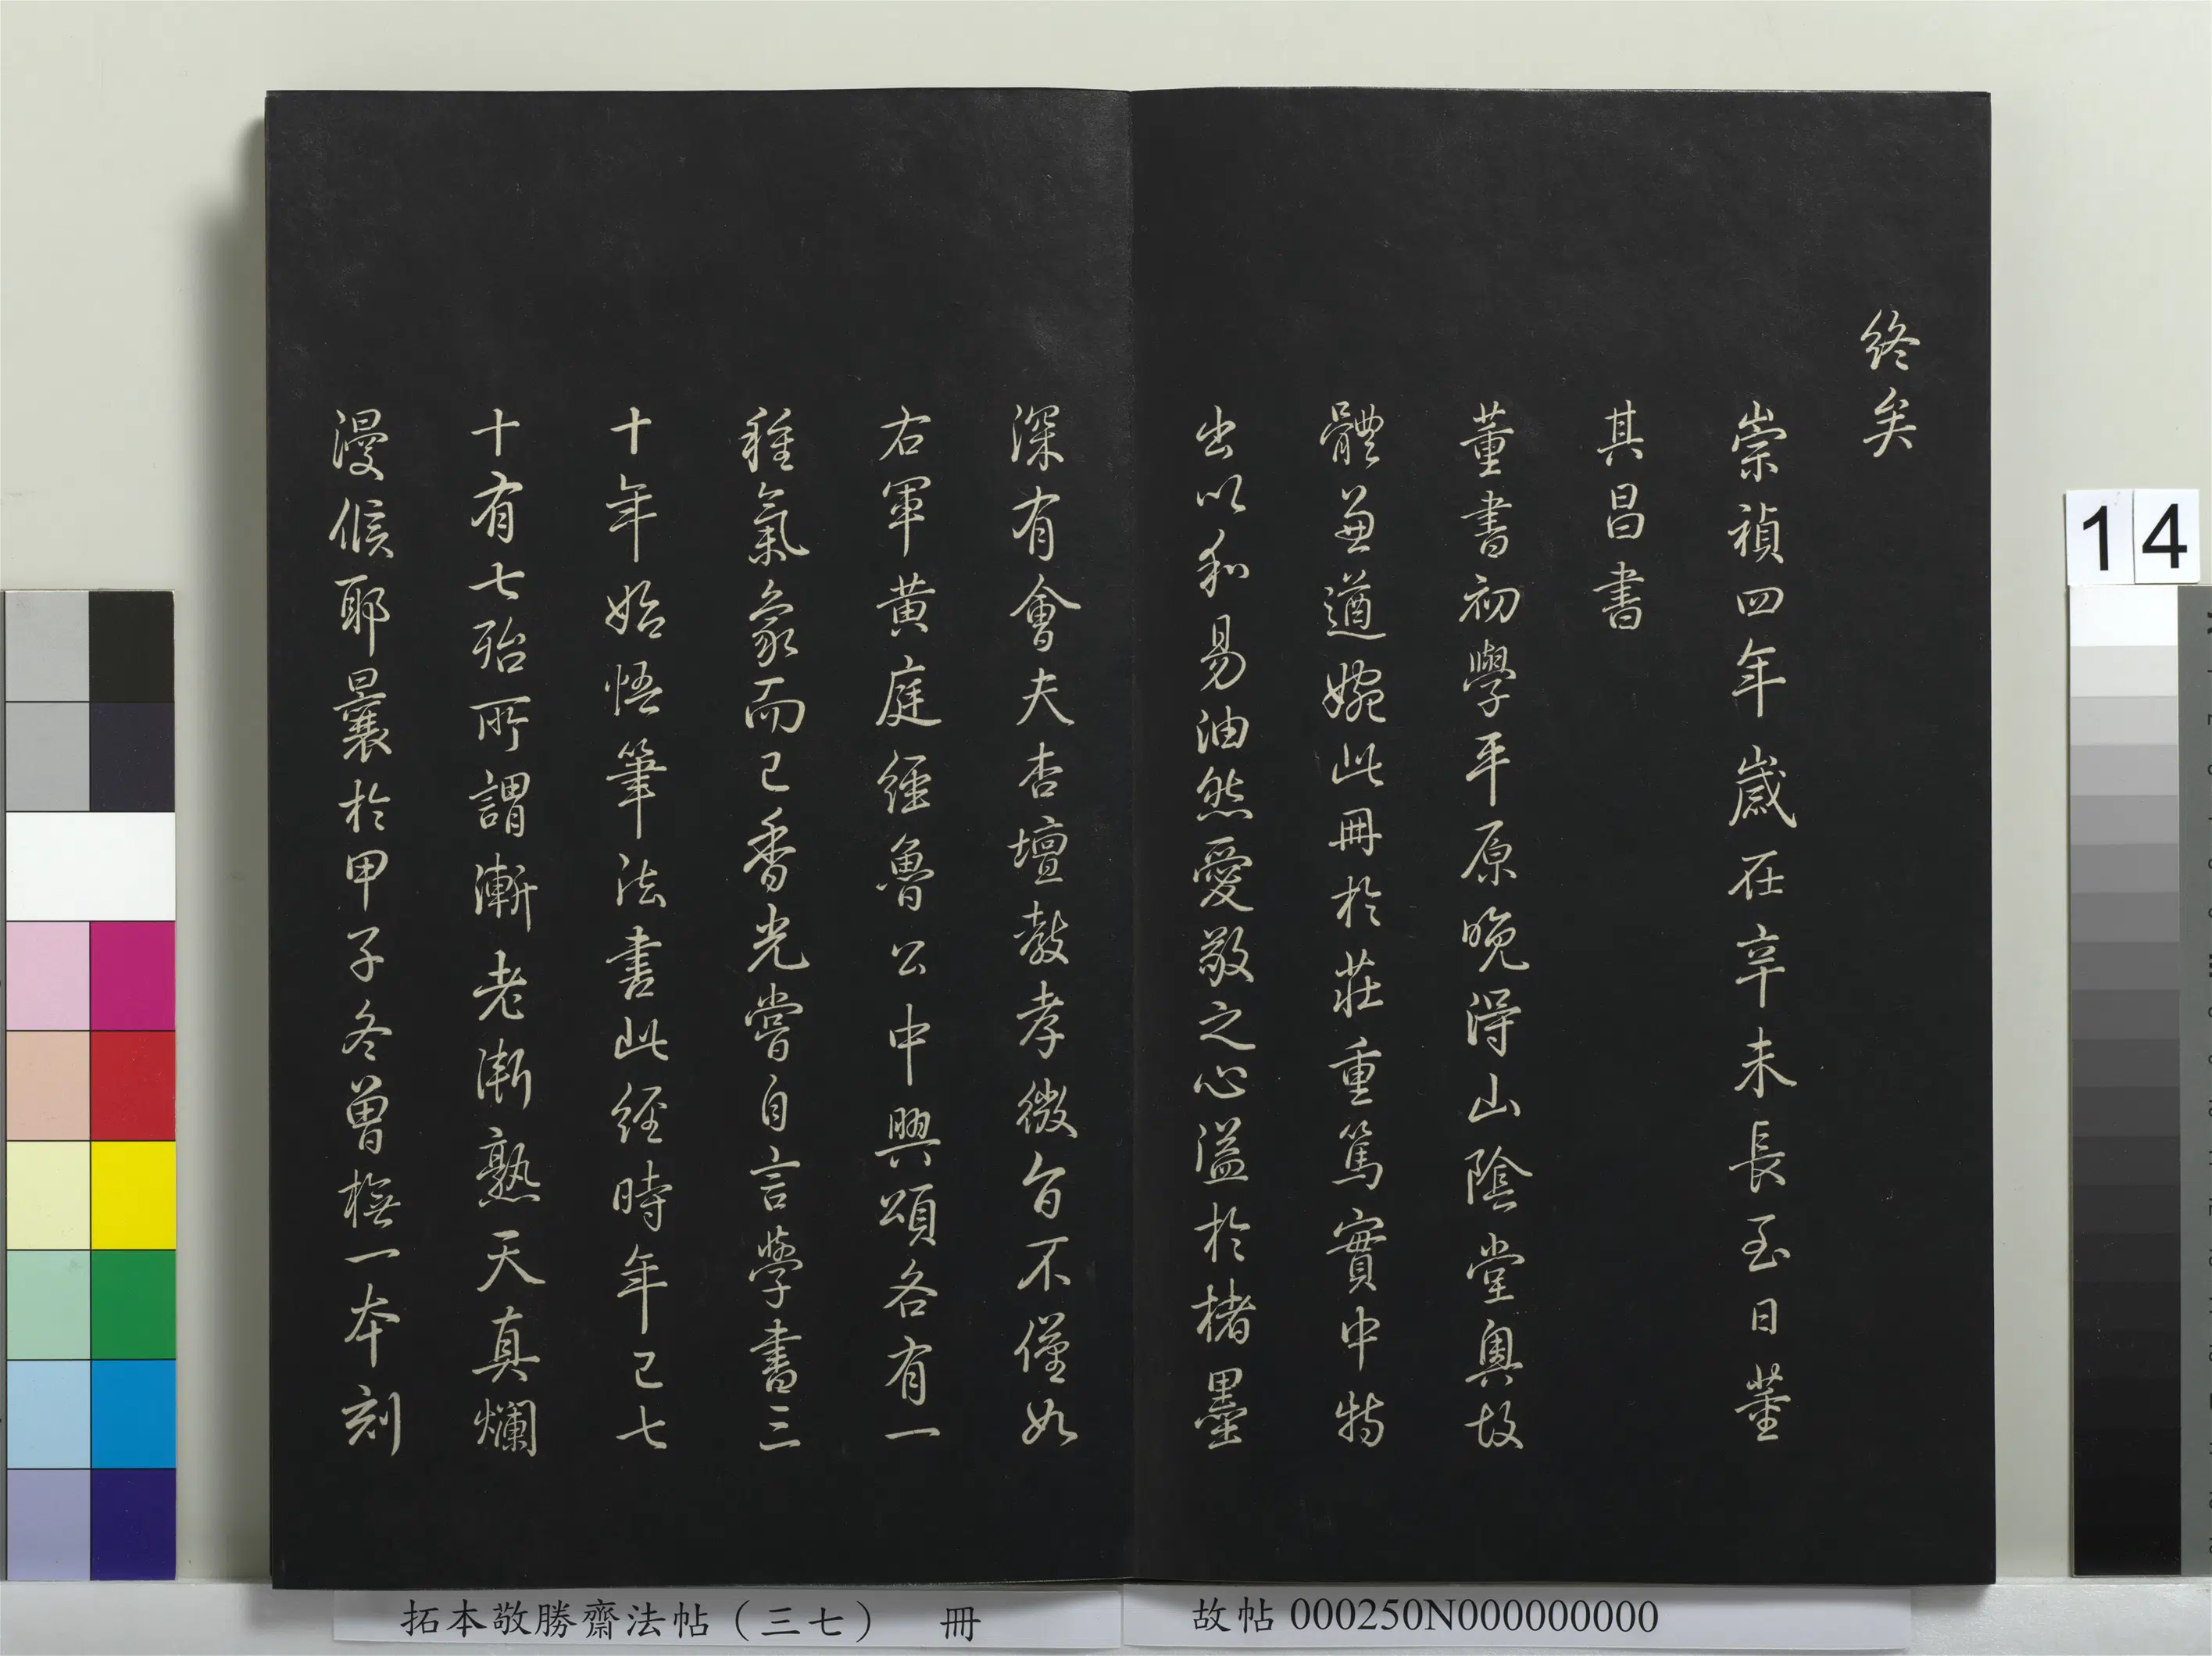 終矣
崇禎四年歲在辛未長至日董
其昌書
董書初學平原晚得山陰堂奧故
體兼遒婉此冊於莊重篤實中特
出以和易油然愛敬之心溢於楮墨
深有會夫杏壇教孝微旨不僅如
右軍黃庭經魯公中興頌各有一
種氣象而已香光嘗自言學書三
十年始悟筆法書此經時年已七
十有七殆所謂漸老漸熟天真爛
漫候耶曩於甲子冬曾橅一本刻
14
拓本敬勝齋法帖（三七） 冊
故帖 000250N000000000